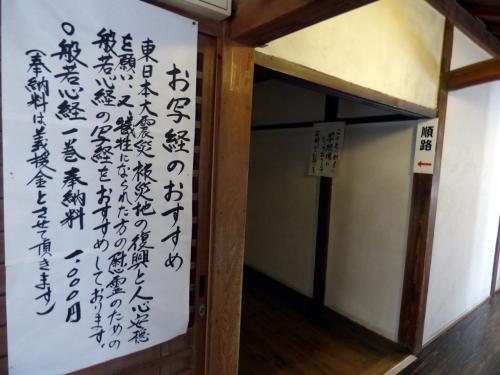 お写経のおすすめ
東日本大震災被災地の復興と人心安穏
を願い、又犠牲になられた方の慰霊のための
般若心経の写経をおすすめしております。
○般若心経一巻奉納料 一、〇〇〇円
(奉納料は義援金とさせて頂きます)
順路
←